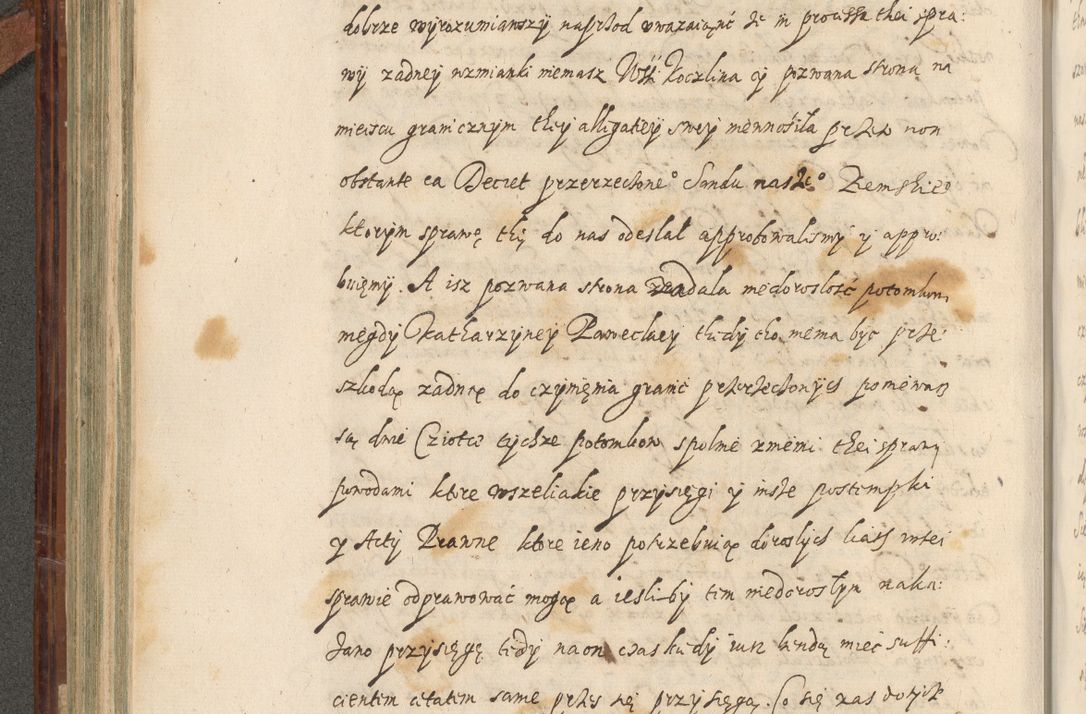 dobrze wyrozumiawszy naprzod uwazaiącz że in processu thei spra:
wy zadney wzmianki niemasz Koczlina cy pozwana strona na
mieiscu granicznym they alligatiey swey niewnosiła przeto non
obstante ea Decret przerzeczone° Sandu nasze° Ziemskie°
ktorym sprawę thę do nas odesłał approbowalismy y appro:
buięmy. A isz pozwana strona zadala niedorosłość potomkow
niegdy Katharzyney Paweckiey thedy tho niema byc prze:
szkodą zadną do czynięnia granic przerzeczonych poniewasz
są dwie Ciotce tychze potomkow spolnie zniemi thei sprawy
powodami ktore wszeliakie przysięgi y insze postempki
y Acty Prawne ktore ieno potrzebuią doroslych liath wtei
sprawie odprawować mogą a iesliby tim niedorosłym naka:
zano przysięgę tedy na on czas kiedy iusz bendą mieć suffi:
cientem ætatem same przes się przysięgą. Co się zas dotycze